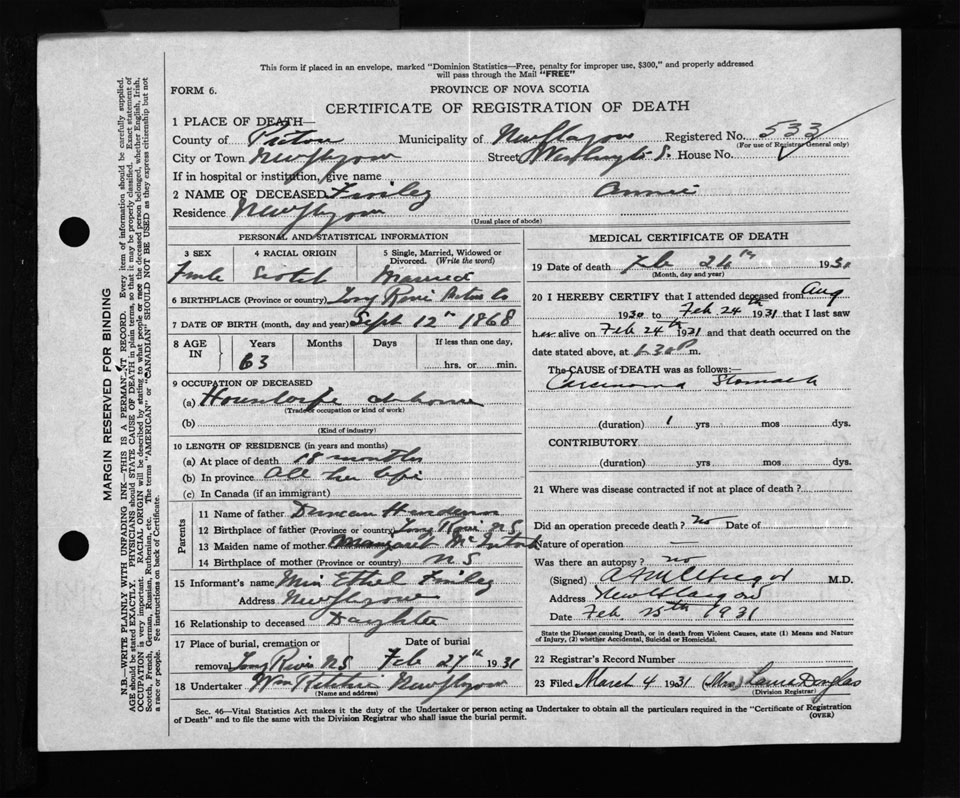 This form if placed in an envelope, marked "Dominion Statistics—Free, penalty for improper use, $300," and properly addressed
will pass through the Mail "FREE"
FORM 6.
PROVINCE OF NOVA SCOTIA
CERTIFICATE OF REGISTRATION OF DEATH
1 PLACE OF DEATH—
County of Pictou Municipality of New Glasgow Registered No. 533
(For use of Registrar General only)
City or Town New Glasgow Street Washington St. House No.
If in hospital or institution, give name
2 NAME OF DECEASED Annie
Residence New Glasgow
(Usual place of abode)
PERSONAL AND STATISTICAL INFORMATION
3 SEX 4 RACIAL ORIGIN 5 Single, Married, Widowed or
Divorced. (Write the word)
Female Scotch Married
6 BIRTHPLACE (Province or country) Pictou Co
7 DATE OF BIRTH (month, day and year) Sept 12th 1868
8 AGE IN Years Months Days If less than one day,
63 hrs. or min.
9 OCCUPATION OF DECEASED
(a) at home
(Trade or occupation or kind of work)
(b)
(Kind of industry)
10 LENGTH OF RESIDENCE (in years and months)
(a) At place of death 18 months
(b) In province All her life
(c) In Canada (if an immigrant)
Parents
11 Name of father Duncan Henderson
12 Birthplace of father (Province or country) N S
13 Maiden name of mother Margaret McIntosh
14 Birthplace of mother (Province or country) N S
15 Informant's name Miss Ethel
Address New Glasgow
16 Relationship to deceased Daughter
17 Place of burial, cremation or Date of burial
removal N S Feb 27th 1931
18 Undertaker Wm Ritchie New Glasgow
(Name and address)
MEDICAL CERTIFICATE OF DEATH
19 Date of death Feb
(Month, day and year)
20 I HEREBY CERTIFY that I attended deceased from Aug
1930 to Feb 24th 1931 that I last saw
her alive on Feb 24th 1931 and that death occurred on the
date stated above, at m.
The CAUSE of DEATH was as follows:—
Carcinoma Stomach
(duration) 1 yrs mos dys.
CONTRIBUTORY
(duration) yrs. mos. dys.
21 Where was disease contracted if not at place of death?
Did an operation precede death? no Date of
Nature of operation —
Was there an autopsy? no
(Signed) M.D.
Address New Glasgow
Date Feb 25th 1931
State the Disease causing Death, or in death from Violent Causes, state (1) Means and Nature
of Injury, (2) whether Accidental, Suicidal or Homicidal.
22 Registrar's Record Number
23 Filed March 4 1931 (Mrs) Laura Douglas
(Division Registrar)
Sec. 46—Vital Statistics Act makes it the duty of the Undertaker or person acting as Undertaker to obtain all the particulars required in the "Certificate of Registration
of Death" and to file the same with the Division Registrar who shall issue the burial permit.
(OVER)
MARGIN RESERVED FOR BINDING
N.B.—WRITE PLAINLY WITH UNFADING INK—THIS IS A PERMANENT RECORD. Every item of information should be carefully supplied.
AGE should be stated EXACTLY. PHYSICIANS should STATE CAUSE OF DEATH in plain terms, so that it may be properly classified. Exact statement of
OCCUPATION is very important. RACIAL ORIGIN will be described by stating to what people or race the deceased person belonged, whether English, Irish,
Scotch, French, German, Russian, Ruthenian, etc. The terms "AMERICAN" or "CANADIAN" SHOULD NOT BE USED as they express citizenship but not
a race or people. See instructions on back of Certificate.